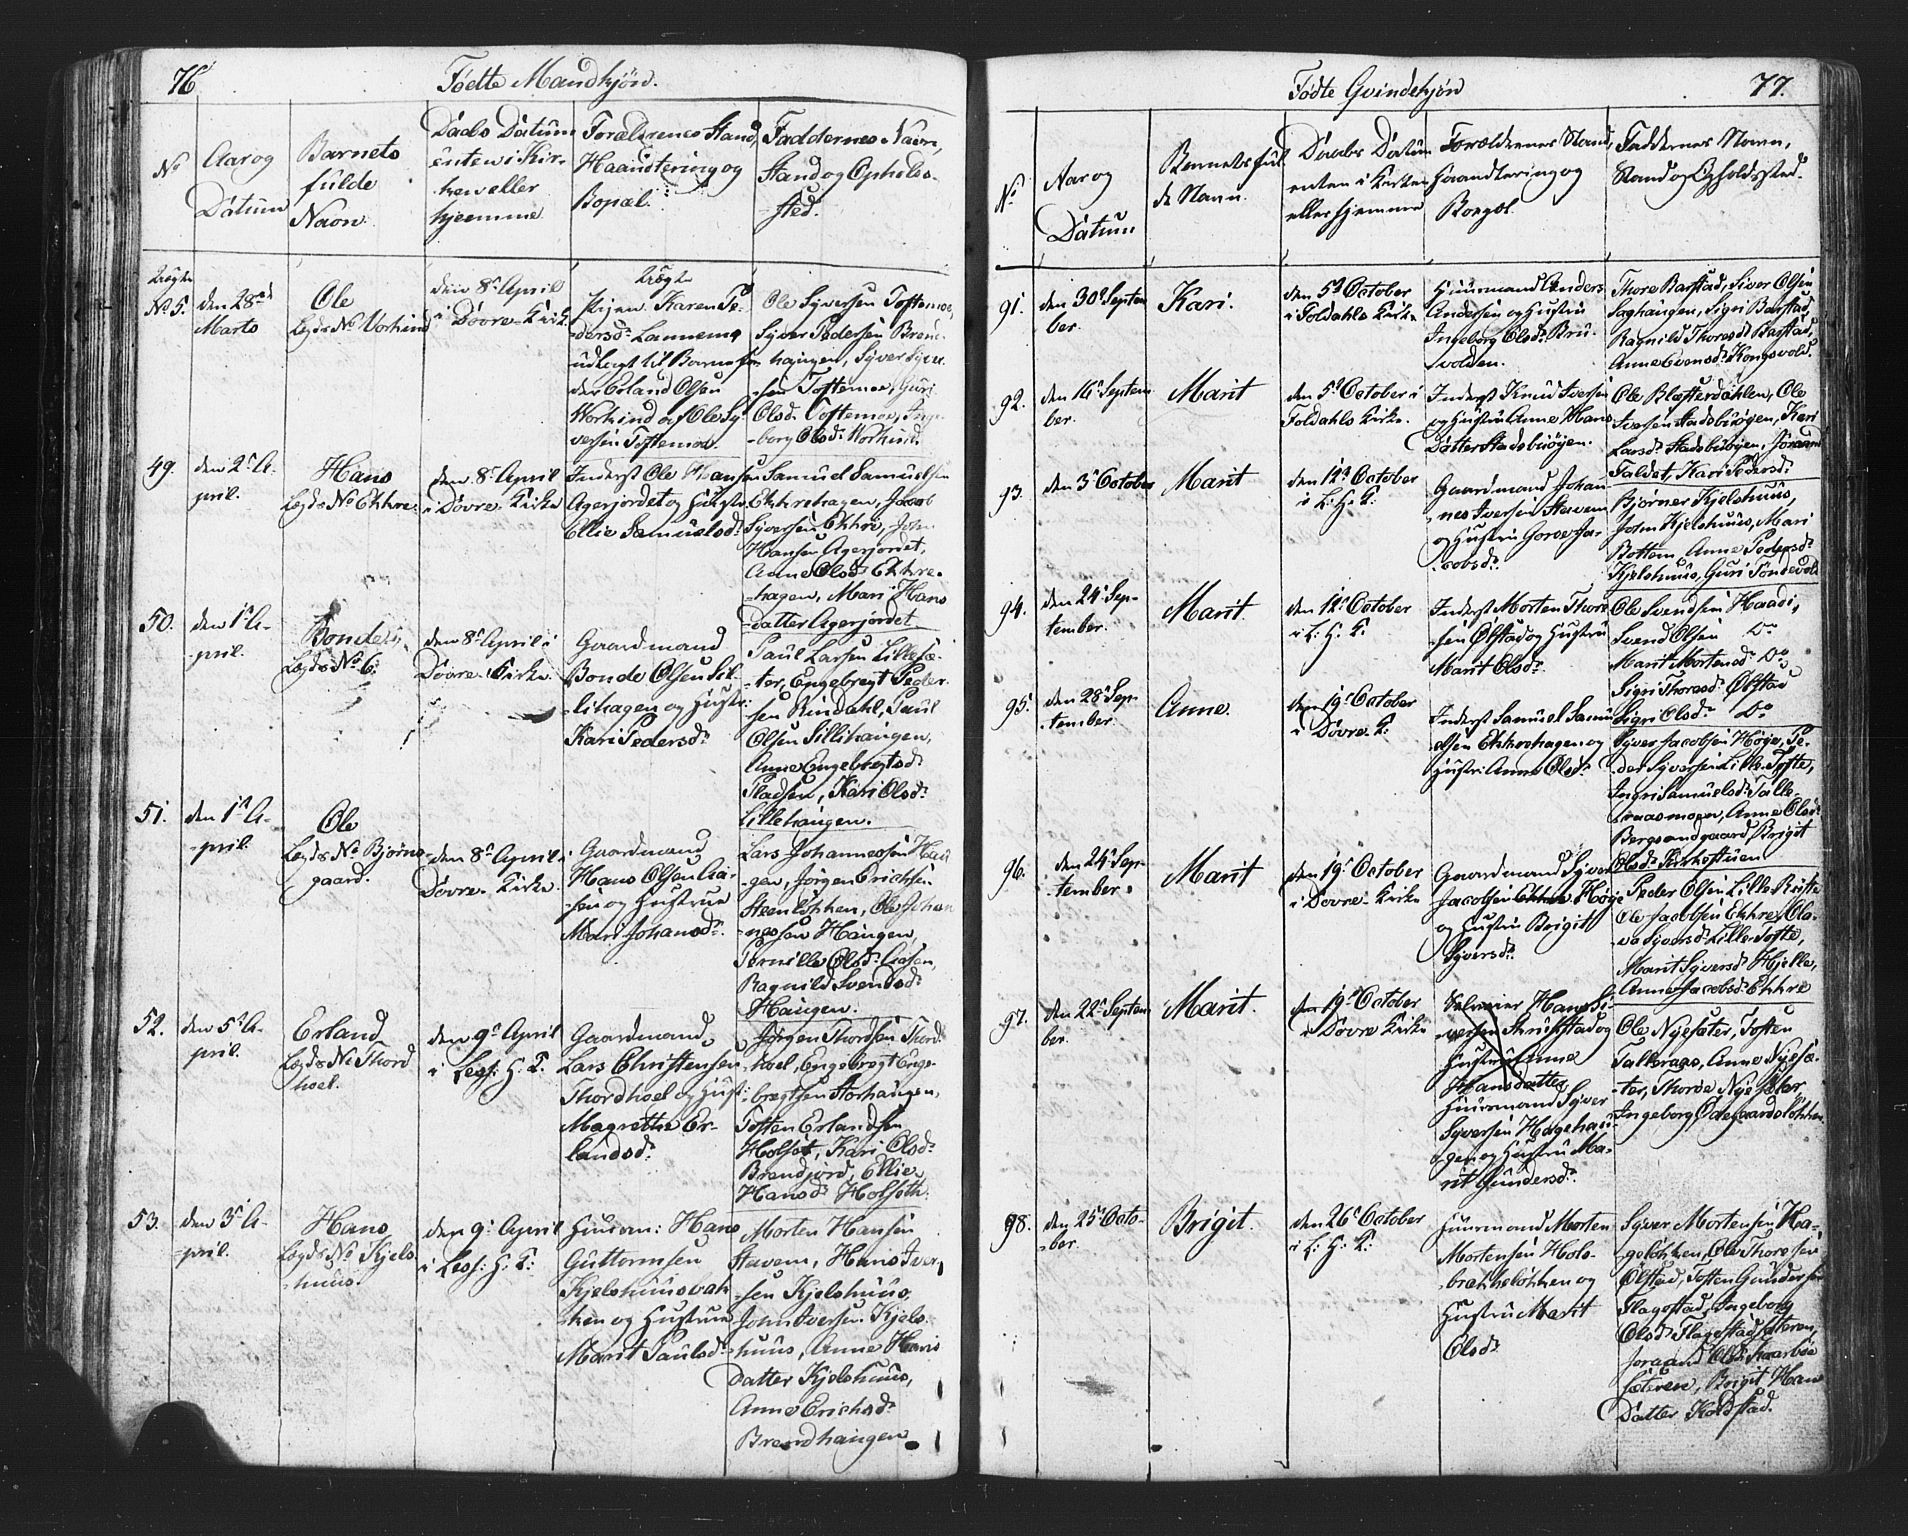 76
Fødte Mandkjön.
No
Aar og
Datum
Barnets
fulde
Navn
Daabs Datum
enten i Kir-
ken eller
hjemme
Forældrenes Stand,
Haandtering og
Bopæl
Faddernes Navn,
Stand og Opholds-
sted.
Uægte
No 5.
den 28de
Marts
Ole
Lægds No Vorkind
den 8de April
i Dovre Kirk.
Uægte
Pigen Karen Pe-
dersd:
udlagt til Barnefa-
der Erland Olsen
Vorkind af Ole Sy-
versen Toftemoe
Ole Syversen Toftemoe,
Syver Pedersen Brenn-
haugen, Syver Syver-
sen Toftemoe, Guri
Olsd: Toftemoe, Inge-
borg Olsd: Vorkind.
49.
den 2n A-
pril.
Hans
Lægds No Ekkre.
den 8n April
i Dovre Kirke
Inderst Ole Hansen
Agerjordet og Hustru
Ellie Samuelsd:
Samuel Samuelsen
Ekkrehagen, Jacob
Syversen Ekkre, John
Hansen Agerjordet,
Anne Olsd: Ekkre-
hagen, Mari Hans
datter Agerjordet
50.
den 1n A-
pril.
Bonde
Lægds No 6:
den 8n April i
Dovre Kirke
Gaardmand
Bonde Olsen Lil-
lihagen og Hustr:
Kari Pedersd:
Paul Larsen Lillesæ-
ter, Engebregt Peder-
sen Rindahl, Paul
Olsen Lillihaugen,
Anne Engebregtsd:
Pladsen, Kari Olsd:
Lillehaugen.
51.
den 1n A-
pril.
Ole
Lægds No Bjørns-
gaard.
den 8n April i
Dovre Kirke
Gaardmand
Hans Olsen Aa-
sen og Hustrue
Mari Johansd:
Lars Johannessen Hau-
gen, Jørgen Erichsen
Steenløkken, Ole Johan
nessen Haugen,
Pernille Olsd: Aasen,
Ragnild Svendsd:
Haugen.
52.
den 5n A-
pril.
Erland
Lægds No Thord
hoel.
den 9n April
i Less: H: K.
Gaardmand
Lars Christensen
Thordhoel og Hust:
Magrethe Er-
landsd:
Jørgen Thordsen Thord-
hoel, Engebregt Enge-
bregtsen Storhaugen,
Tosten Erlandsen
Holset, Kari Olsd:
Brandjord, Ellie
Hansd: Holseth.
53.
den 3n A-
pril.
Hans
Lægds No Kjels-
huus.
den 9n April
i Less: H: K:
Huusm: Hans
Guttormsen
Kjelshuusbak
ken og Hustrue
Marit Paulsd:
Morten Hansen
Stavem, Hans Iver-
sen Kjelshuus,
John Iversen Kjels-
huus, Anne Hans
datter Kjelshuus,
Anne Erichsd:
Brendhaugen
77.
Fødte Qvindekjön
No
Aar og
Datum
Barnets ful
de Navn
Daabs Datum
enten i Kirken
eller hjemme
Forældrenes Stand,
Haandtering og
Bopæl
Faddernes Navn,
Stand og Opholdssted.
91.
den 30n Septem
ber.
Kari.
den 5n October
i Foldahls Kirke
Huusmand Anders
Andersen og Hustru
Ingeborg Olsd: Bru-
volden.
Thore Barstad, Siver Olsen
Saghaugen, Sigri Barstad,
Ragnild Thoresd: Barstad,
Anne Evensd: Kongsvold.
92.
den 16n Septem
ber.
Marit
den 5n October i
Foldahls Kirke.
Inderst Knud Iversen
og Hustru Anne Hans
Datter Stadsbuøyen.
Ole Blæsterdahlen, Ole
Iversen Stadsbuøyen, Kari
Larsd: Stadsbuøyen, Joraand
Faldet, Kari Pedersd:
93.
den 3n October
Marit
den 12n October
i L: H: K:
Gaardmand Johan
nes Iversen Stavem
og Hustru Goroe Ja-
cobsd:
Bjørner Kjelshuus,
John Kjelshuus, Mari
Bottem, Anne Pedersd:
Kjelshuus, Guri Tondevold
94.
den 24n Sep-
tember.
Marit.
den 12n October
i L: H: K.
Inderst Morten Thore
sen Ølstad og Hustru
Marit Olsd:
Ole Svendsen Haasi,
Svend Olsen Do
Marit Mortensd: Do
Sigri Thoresd: Ølstad
Sigri Olsd: Do
95.
den 28n Sep-
tember.
Anne.
den 19n October
i Dovre K:
Inderst Samuel Samu-
elsen Ekkrehagen og
Hustr: Anne Olsd:
Syver Jacobsen Høye, Pe-
der Syversen Lille Tofte,
Ingri Samuelsd: Talle-
raasmoen, Anne Olsd:
Bergsendgaard, Brigit
Olsd: Kirkestuen
96.
den 24n Sep-
tember.
Marit
den 19n October
i Dovre Kirke
Gaardmand Syver
Jacobsen Ekkre Høye
og Hustru Brigit
Syversd:
Peder Olsen Lille Kriste
Ole Jacobsen Ekkre, Ole-
va Syversd: Lille Tofte,
Marit Syversd: Hjelle,
Anne Jacobsd: Ekkre
97.
den 22n Septem
ber.
Marit.
den 19n October
i Dovre Kirke
Selveier Hans Si-
versen
Hustru Anne
Hansdatter
Huusmand Syver
Syversen Hagehau-
gen og Hustru Ma-
rit Gundersd:
Ole Nyesæter, Tosten
Talleraas, Anne Nyesæ-
ter, Thorde Nyesæter
Ingeborg Ødegaardsløkken
98.
den 25n Octo-
ber.
Brigit.
den 26n October
i L: H: K:
Huusmand Morten
Mortensen Hols-
brækkeløkken og
Hustru Marit
Olsd:
Syver Mortensen Ha-
geløkken, Ole Thoresen
Ølstad, Tosten Gundersen
Flagstad, Ingeborg
Olsd: Flagstadsæteren,
Joraand Olsd: Skaarbøe
sæteren, Brigit Hans
Datter Koldstad.